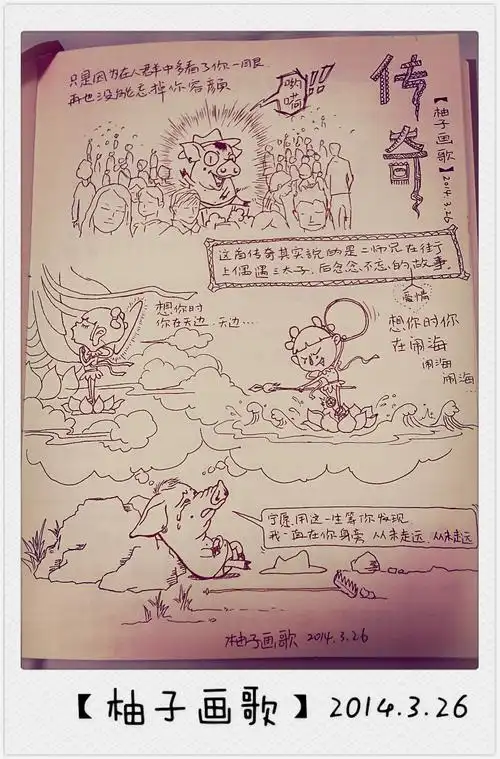 只是因为在人群中多看了你一眼
再也没能忘掉你容颜
哟嗬!!!
传奇
【柚子画歌】2014.3.26
这首传奇其实说的是二师兄在街
上偶遇三太子,后念念不忘的故事。
爱情
想你时
你在天边...天边...
想你时你
在闹海
闹海
闹海...
宁愿用这一生等你发现
我一直在你身旁 从未走远 从未走远
柚子画歌 2014.3.26
【柚子画歌】2014.3.26